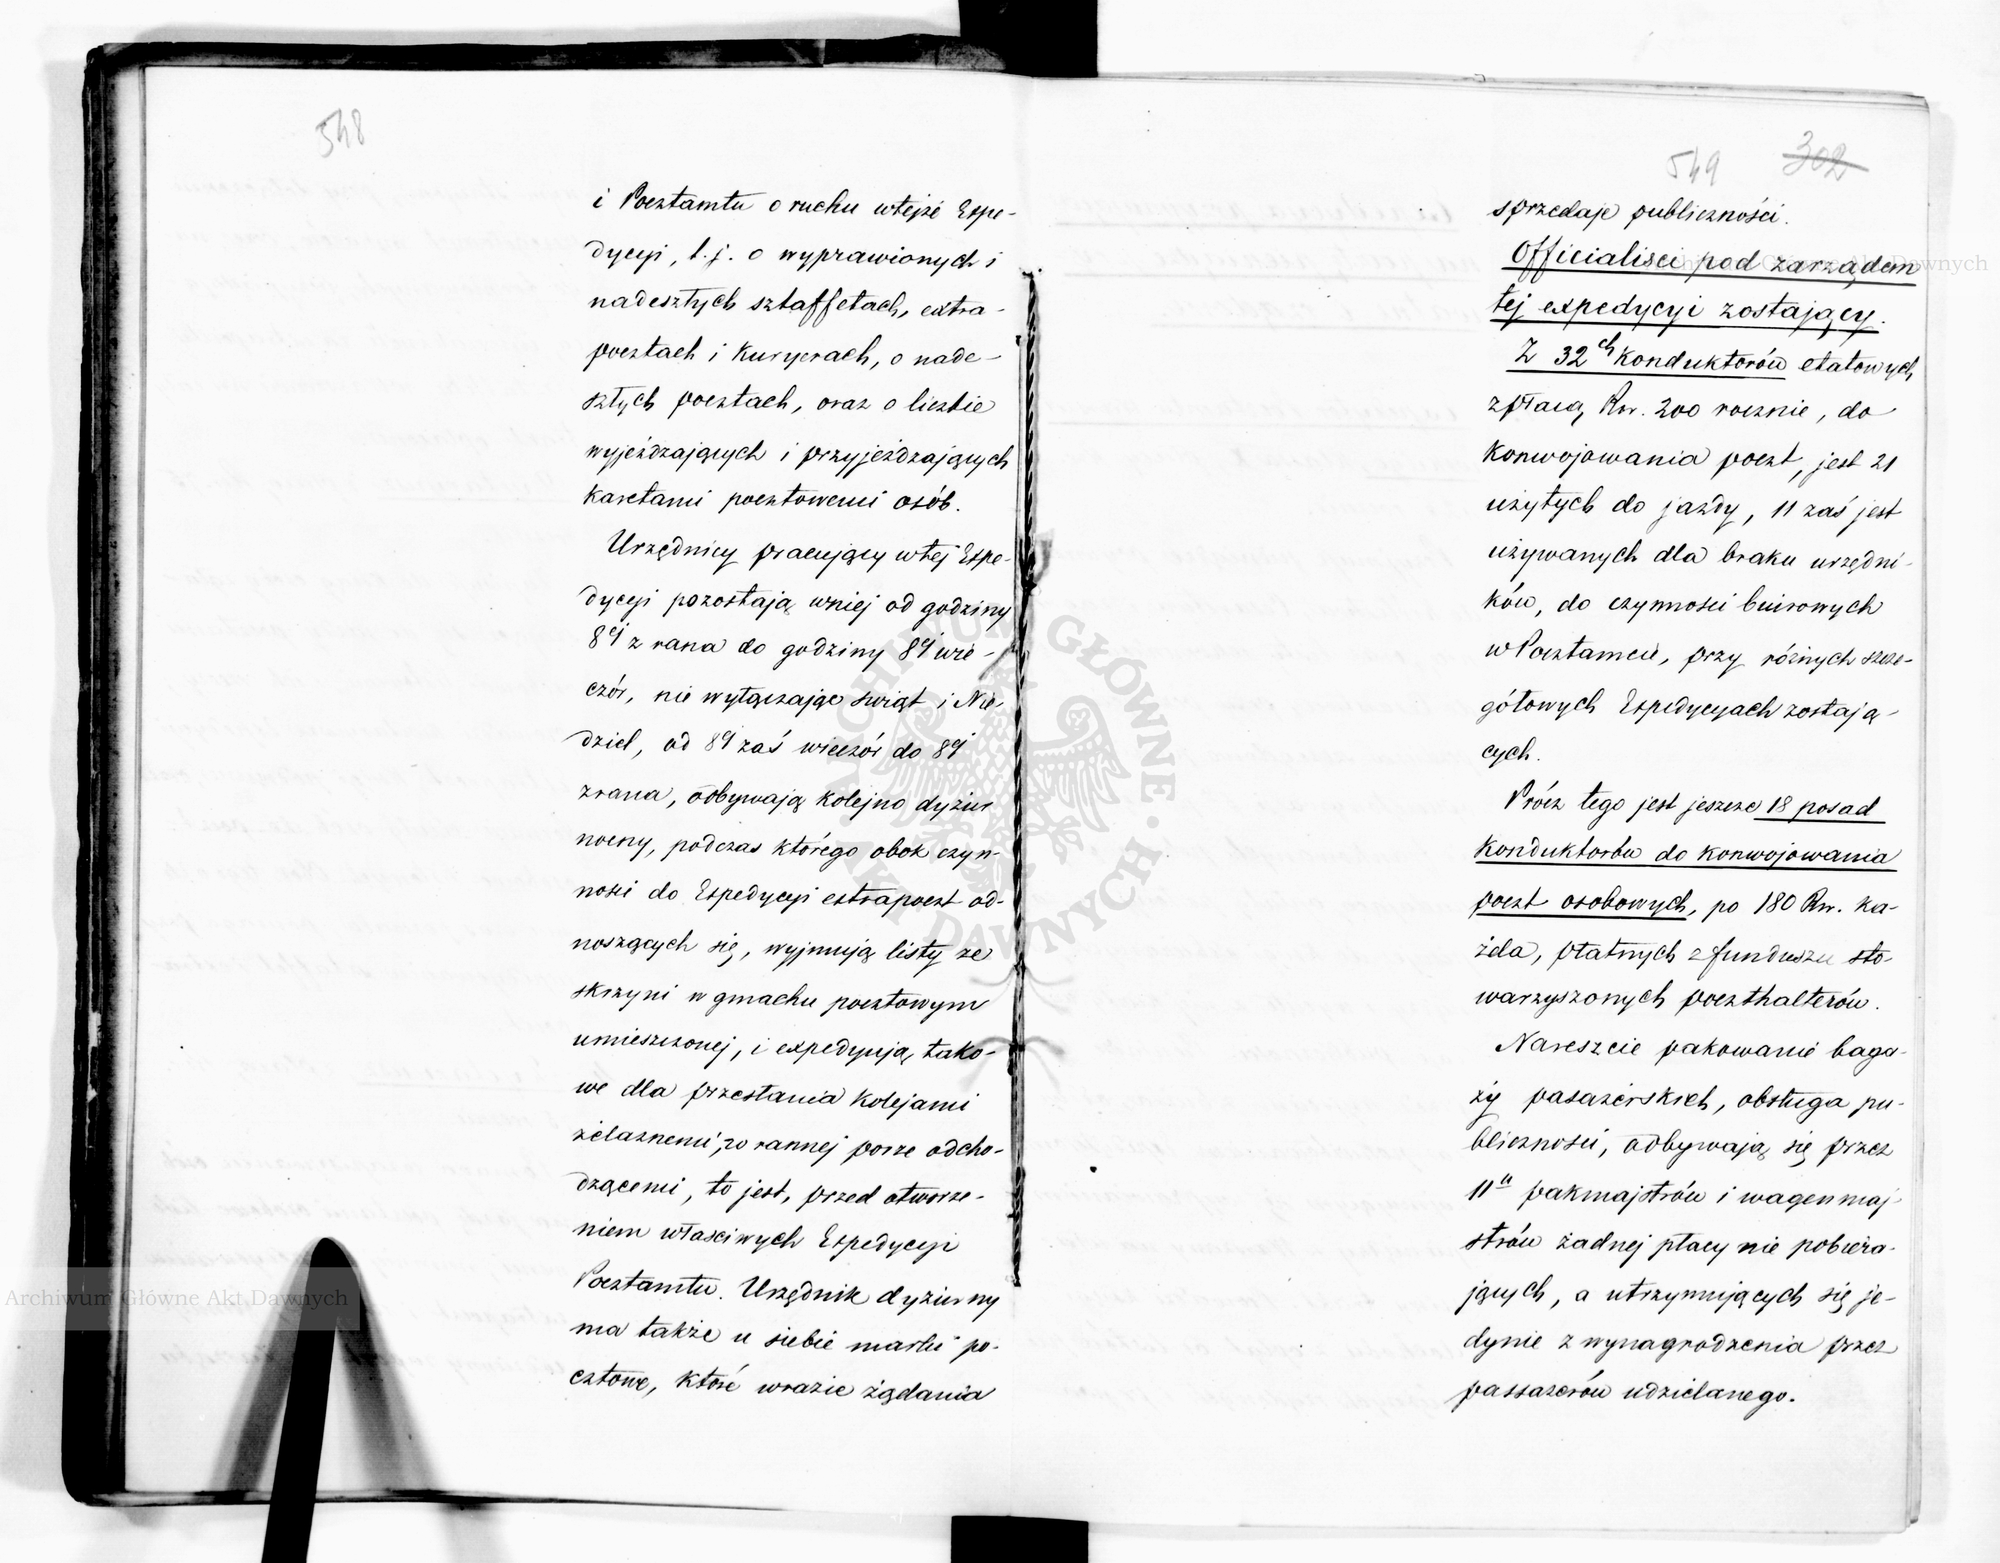 548
i Pocztamtu o ruchu wtejże Expe-
dycyi, t.j. o wyprawionych i
nadeszłych sztaffetach, extra-
pocztach i Kuryerach, o nade-
szłych pocztach, oraz o liczbie
wyjeżdzających i przyjeżdzających
karetami pocztowemi osób.
Urzędnicy pracujący wtej Expe-
dycyi pozostają wniej od godziny
8éj z rana do godziny 8éj wie-
czór, nie wyłączając świąt i Nie-
dziel, od 8éj zaś wieczór do 8éj
zrana, odbywają kolejno dyżur
nocny, podczas którego obok czyn-
ności do Expedycyi extrapoczt od-
noszących się, wyjmują listy ze
skrzyni w gmachu pocztowym
umieszczonej, i expedyują tako-
we dla przesłania Kolejami
żelaznemi, w rannej porze odcho-
dzącemi, to jest, przed otworze-
niem właściwych Expedycyi
Pocztamtu. Urzędnik dyżurny
ma także u siebie marki po-
cztowe, które wrazie żądania
549 302
sprzedaje publiczności.
Officialisci pod zarządem
tej expedycyi zostający.
Z 32ch Konduktorów etatowych
zpłacą Rsr. 200 rocznie, do
Konwojowania poczt, jest 21
użytych do jazdy, 11 zaś jest
używanych dla braku urzędni-
ków, do czynności biurowych
w Pocztamcie, przy różnych szcze-
gółowych Expedycyach zostają-
cych.
Prócz tego jest jeszcze 18 posad
Konduktorów do konwojowania
poczt osobowych, po 180 Rsr. ka-
żda, płatnych z funduszu sto-
warzyszonych poczthalterów.
Nareszcie pakowanie baga-
ży pasażerskich, obsługa pu-
bliczności, odbywają się przez
11u pakmajstrów i wagenmaj-
strów żadnej płacy nie pobiera-
jących, a utrzymujących się je-
dynie z wynagrodzenia przez
passażerów udzielanego.
Archiwum Główne Akt Dawnych
ARCHIWUM GŁÓWNE AKT DAWNYCH
Archiwum Główne Akt Dawnych